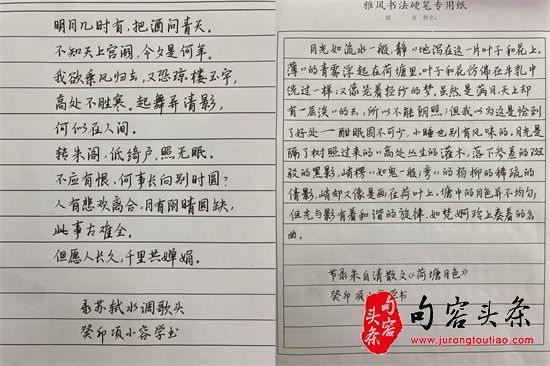 明月几时有,把酒问青天。
不知天上宫阙,今夕是何年。
我欲乘风归去,又恐琼楼玉宇,
高处不胜寒。起舞弄清影,
何似在人间。
转朱阁,低绮户,照无眠。
不应有恨,何事长向别时圆?
人有悲欢离合,月有阴晴圆缺,
此事古难全。
但愿人长久,千里共婵娟。
录苏轼水调歌头
癸卯项小容学书
雅风书法硬笔专用纸
级 班 姓名:
月光如流水一般,静静地泻在这一片叶子和花上。
薄薄的青雾浮起在荷塘里。叶子和花仿佛在牛乳中
洗过一样;又像笼着轻纱的梦。虽然是满月,天上却
有一层淡淡的云,所以不能朗照;但我以为这是恰到
了好处——酣眠固不可少,小睡也别有风味的。月光是
隔了树照过来的,高处丛生的灌木,落下参差的斑
驳的黑影,峭楞楞如鬼一般;弯弯的杨柳的稀疏的
倩影,却又像是画在荷叶上。塘中的月色并不均匀;
但光与影有着和谐的旋律,如梵婀玲上奏着的名
曲。
节录朱自清散文《荷塘月色》
癸卯项小容学书
头条
句容
句容头条
www.jurongtoutiao.com